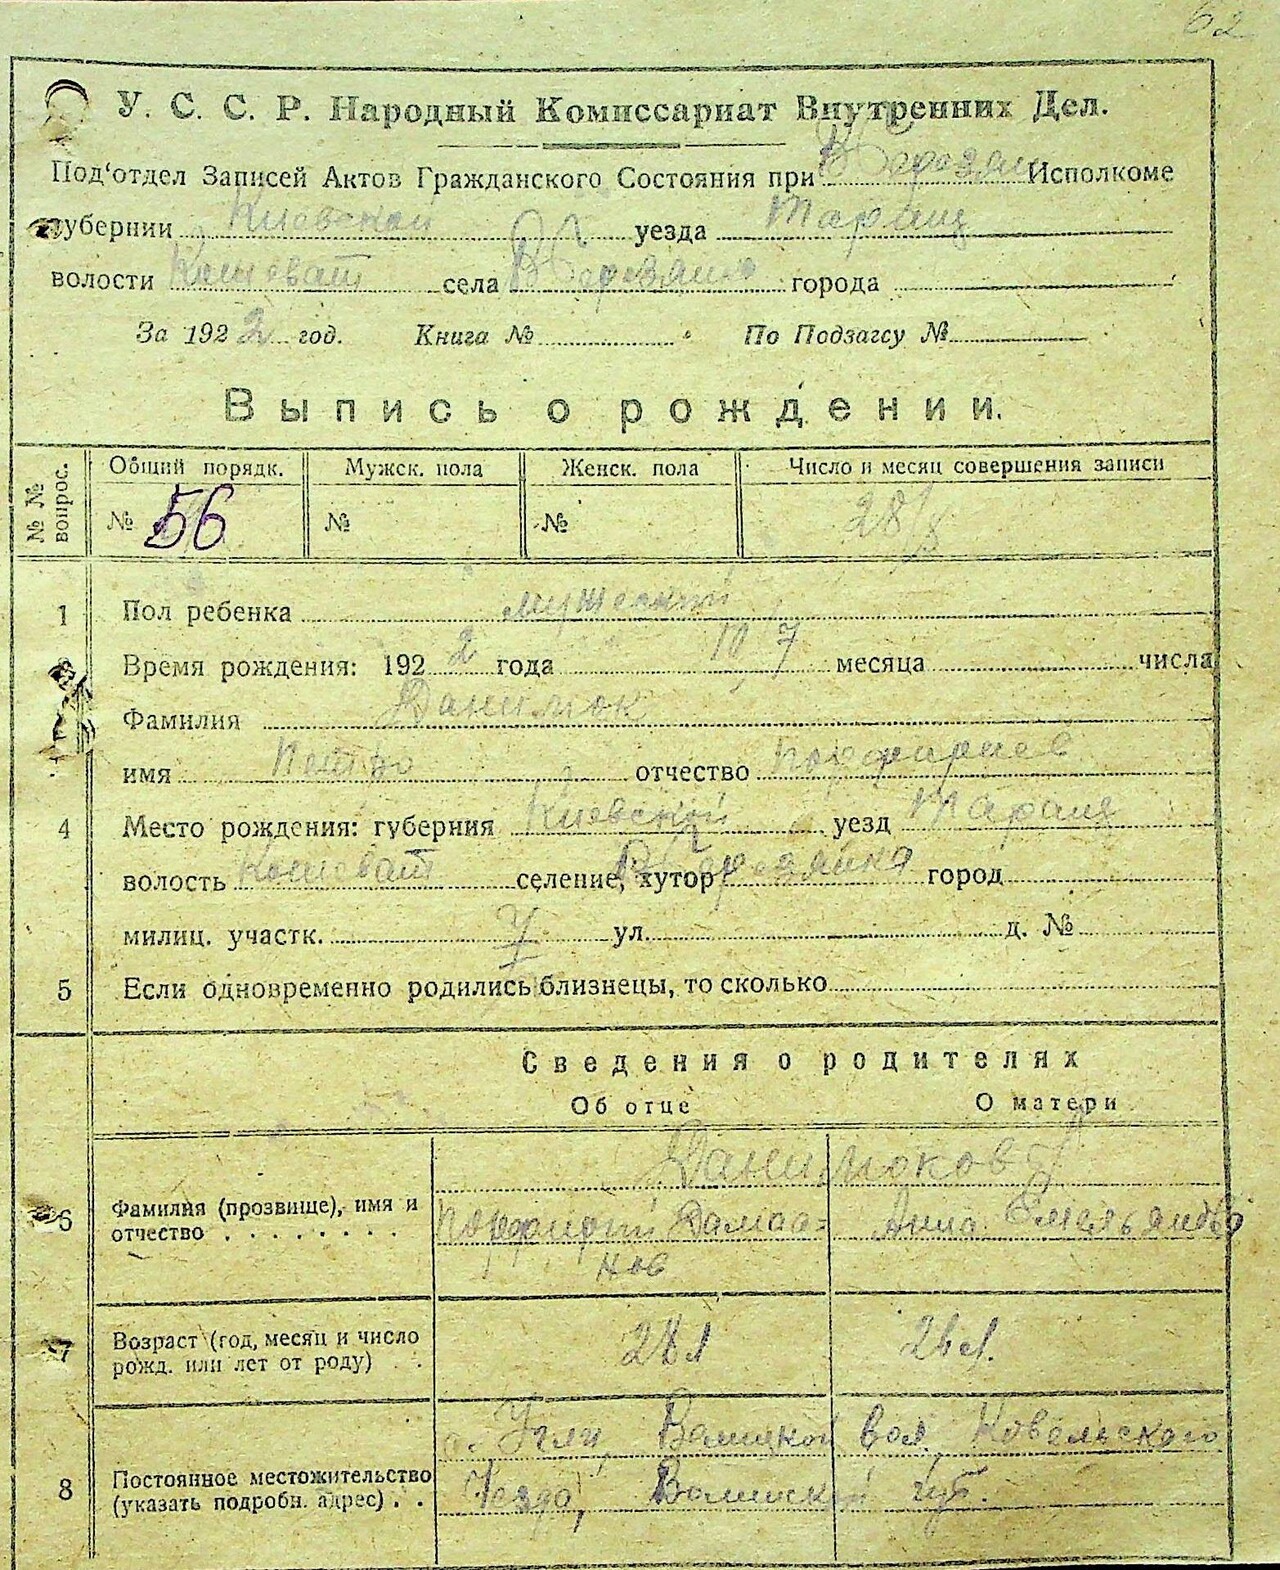 62
У. С. С. Р. Народный Комиссариат Внутренних Дел.
Под'отдел Записей Актов Гражданского Состояния при ВБерезян Исполкоме
губернии Киевской уезда Таращ
волости Кошеват села ВБерезянка города
За 1922 год. Книга № По Подзагсу №
Выпись о рождении.
№№ вопрос. Общий порядк. Мужск. пола Женск. пола Число и месяц совершения записи
№ 56 № № 28/8
1 Пол ребенка мужеский
Время рождения: 1922 года 10/7 месяца числа
Фамилия Данилюк
имя Петро отчество Порфириев
4 Место рождения: губерния Киевской уезд Таращ
волость Кошеват селение, хутор ВБерезянка город
милиц. участк. ул. д. №
5 Если одновременно родились близнецы, то сколько
Сведения о родителях
Об отце О матери
Данилюков
6 Фамилия (прозвище), имя и отчество Порфирий Дамиа=нов Анна
7 Возраст (год, месяц и число рожд. или лет от роду) 28 л 26 л.
с. Угли, Велицкой вол. Ковельского
8 Постоянное местожительство (указать подробн. адрес) Уезда, Волынской губ.